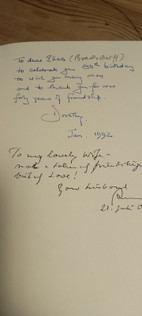 To dear (Broadsides)
to celebrate your birthday
to wish you many more
and to thank you for over
forty years of friendship.
Dorothy
Jan. 1992
To my lovely Wife -
not a token of friendship
but of Love!
Your husband
21. Juli